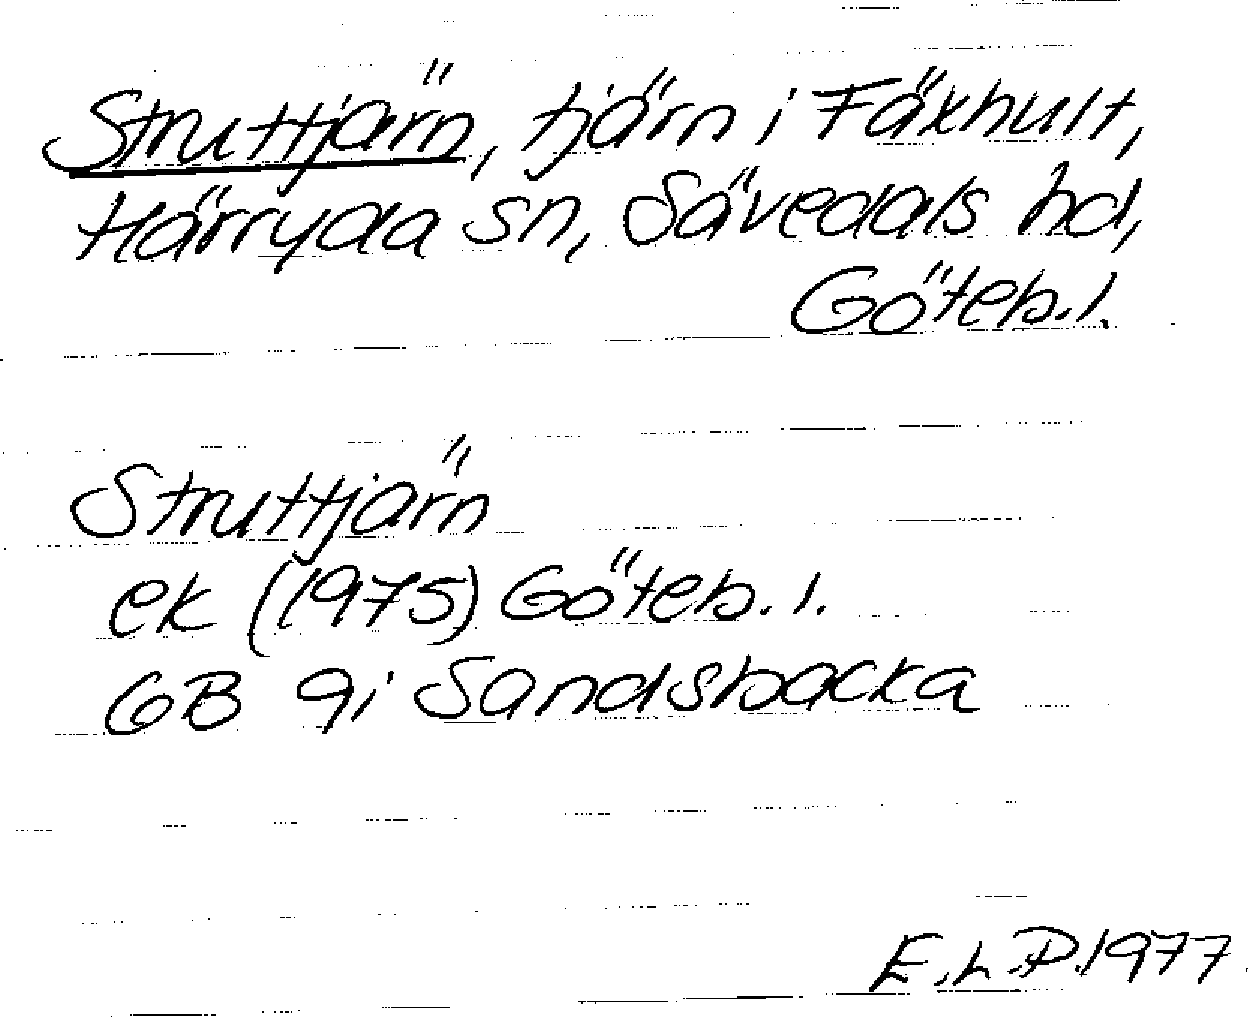 Struttjärn, tjärn i Fäxhult,
Härryda sn, Sävedals hd,
Göteb. l.
Struttjärn
ek (1975) Göteb. l.
GB 9i Sandsbacka
E.L.P. 1977